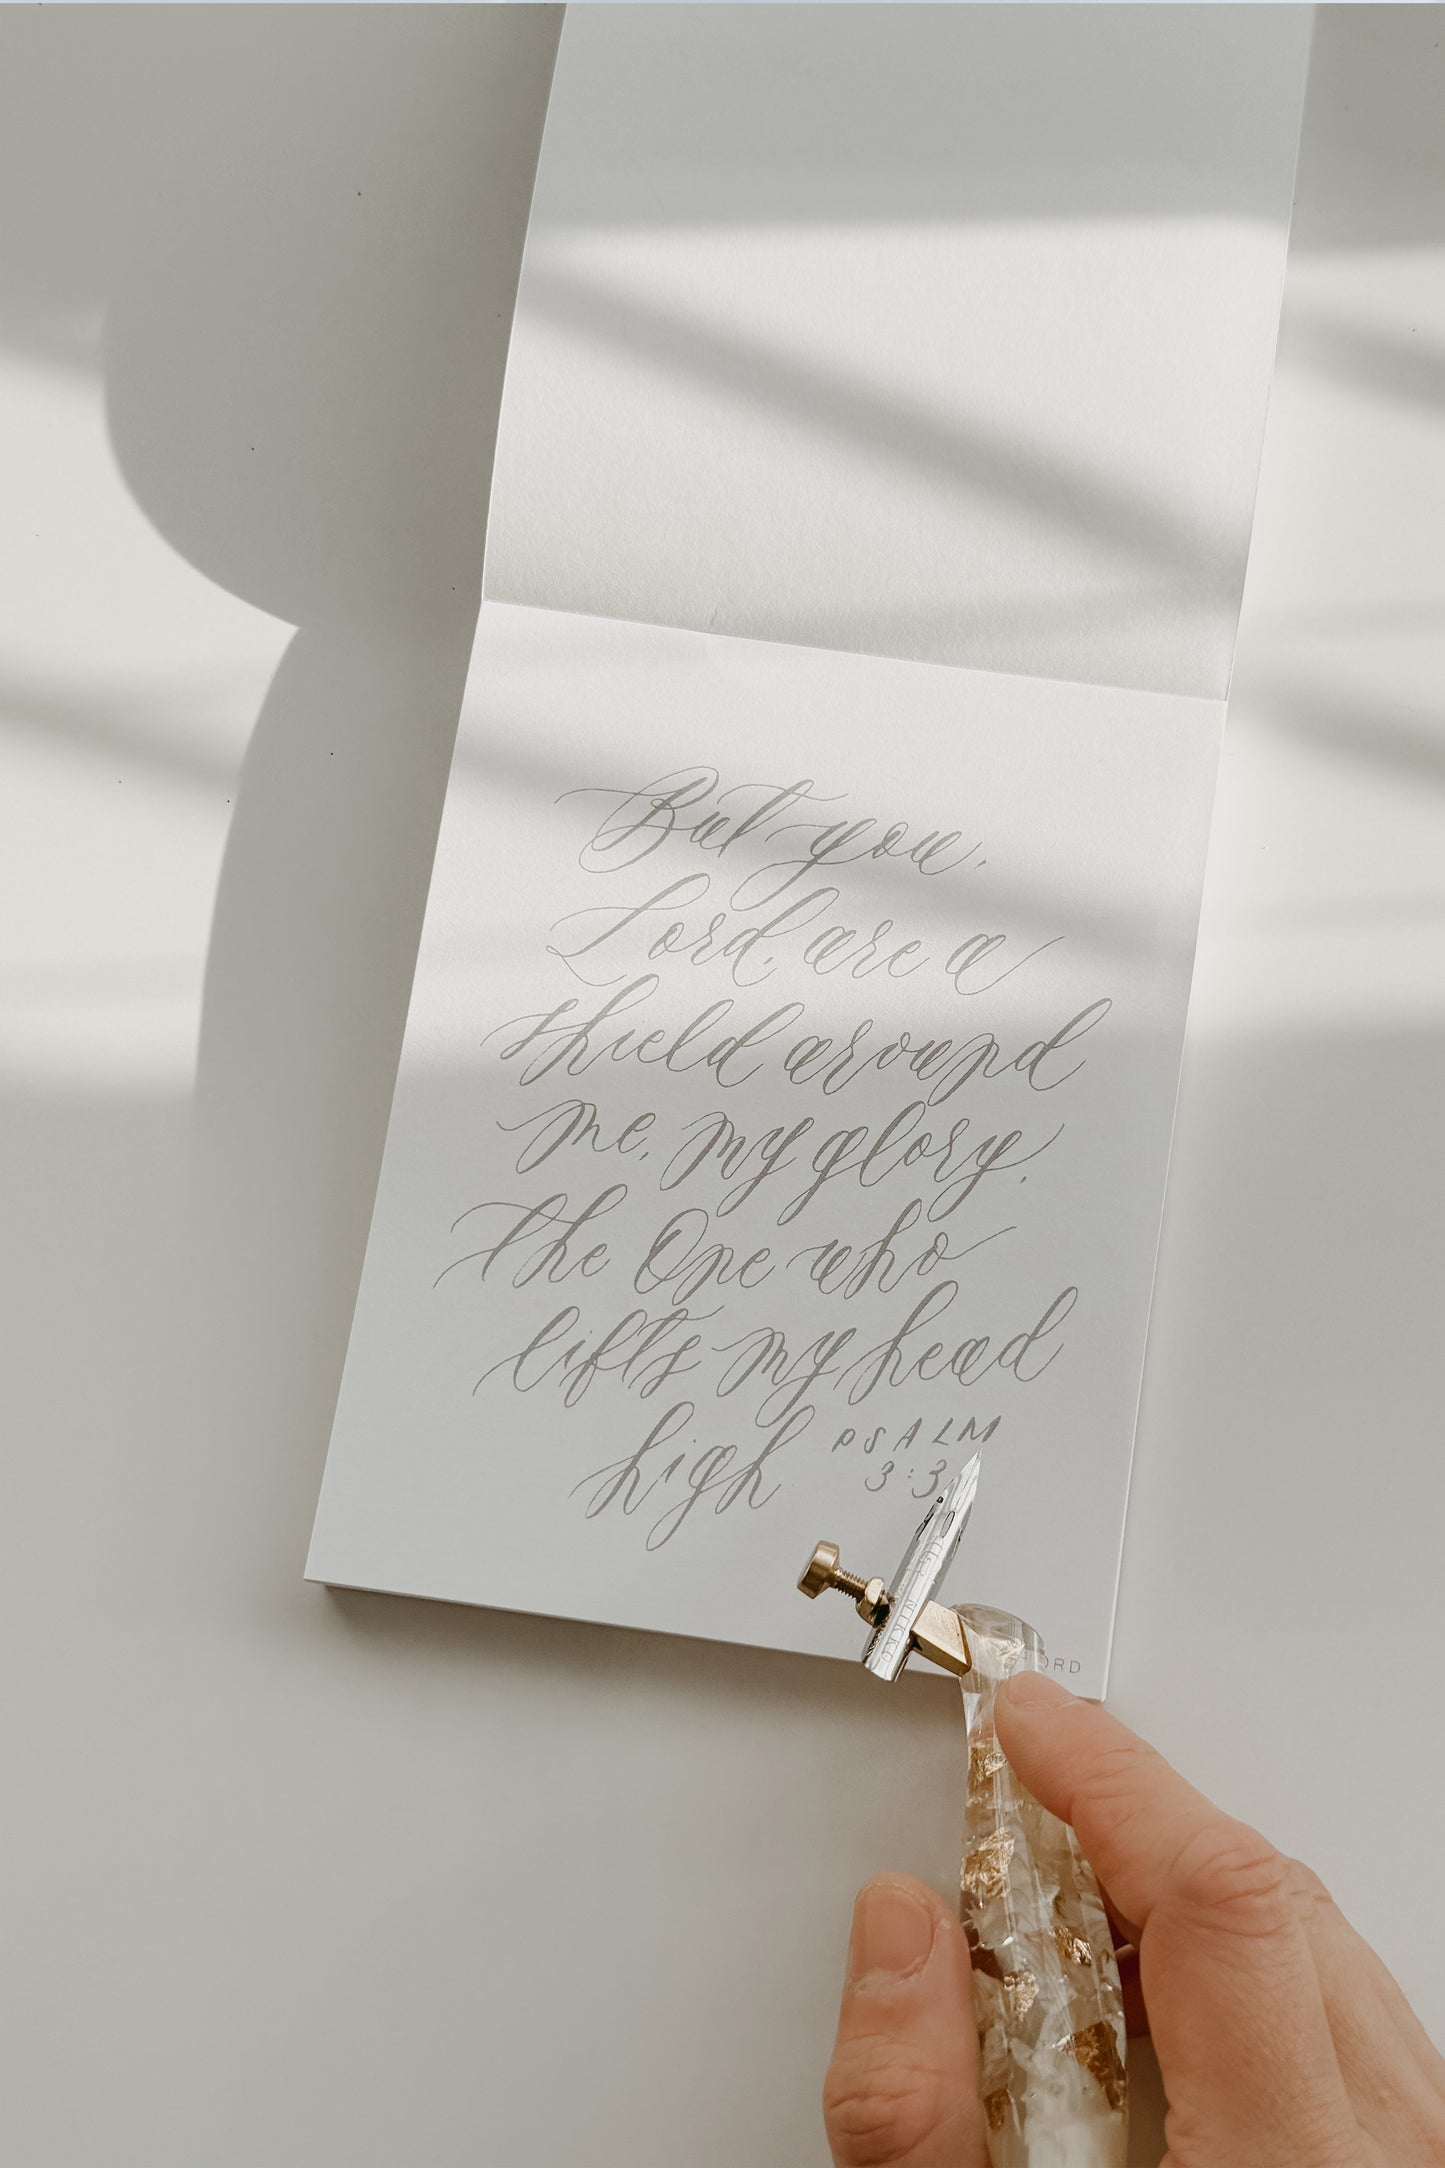 But you,
Lord, are a
shield around
me, my glory,
the One who
lifts my head
high PSALM
3:3
NIKKO G